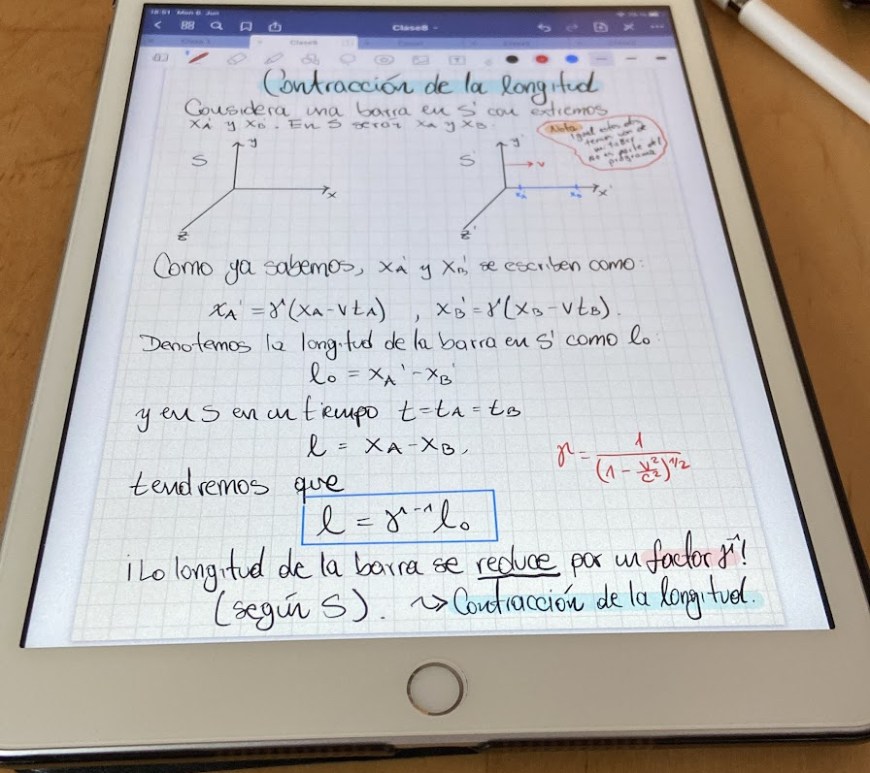 Clase8
Contracción de la longitud
Considera una barra en S' con extremos
xA' y xB'. En S serán xA y xB.
Nota:
S y x z
S' y' v xA' xB' x' z'
Como ya sabemos, xA' y xB' se escriben como:
xA' = γ(xA - vtA) , xB' = γ(xB - vtB).
Denotemos la longitud de la barra en S' como l₀:
l₀ = xA' - xB'
y en S en un tiempo t = tA = tB
l = xA - xB,
γ = 1/(1 - v²/c²)^1/2
tendremos que
l = γ⁻¹ l₀
¡La longitud de la barra se reduce por un factor γ⁻¹!
(según S). ⇝ Contracción de la longitud.